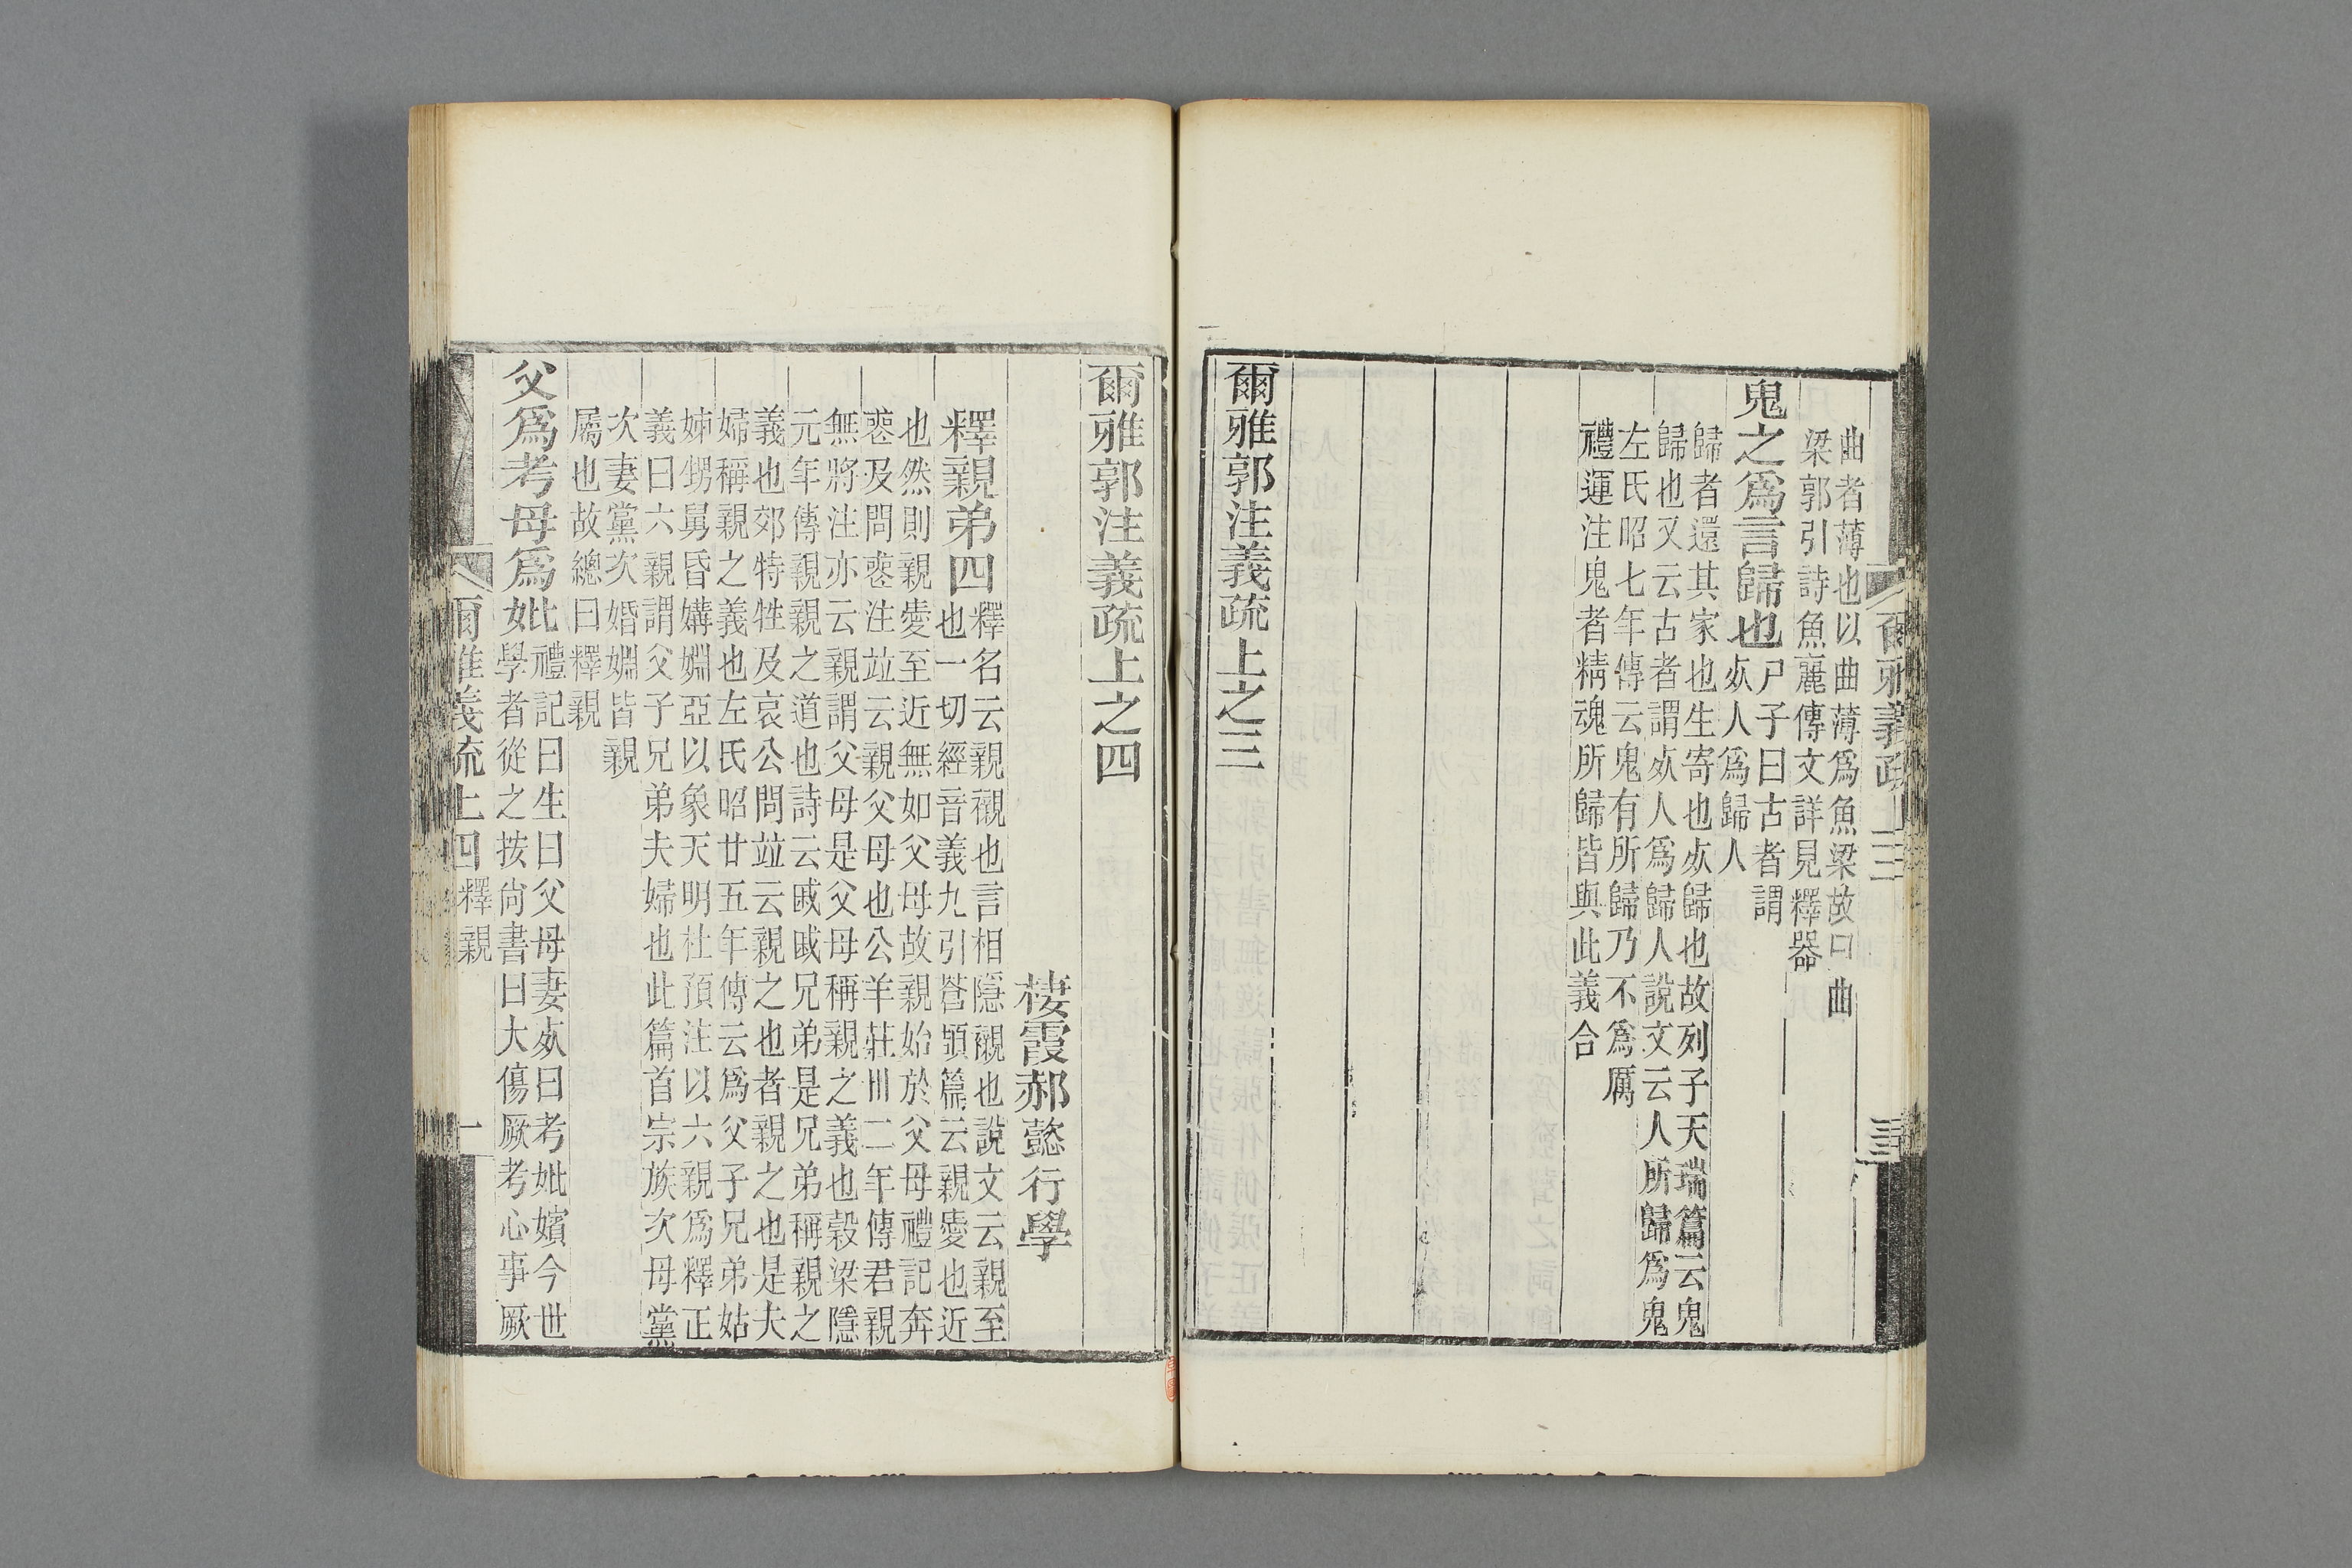 曲者薄也以曲薄爲魚梁故曰曲
梁郭引詩魚麗傳文詳見釋器
鬼之爲言歸也
尸子曰古者謂
㱁人爲歸人
歸者還其家也生寄也㱁歸也故列子天瑞篇云鬼
歸也又云古者謂㱁人爲歸人說文云人所歸爲鬼
左氏昭七年傳云鬼有所歸乃不爲厲
禮運注鬼者精魂所歸皆與此義合
爾雅郭注義疏上之三
爾雅郭注義疏上之四
棲霞郝懿行學
釋親弟四
釋名云親襯也言相隱襯也說文云親至
也一切經音義九引蒼頡篇云親愛也近
也然則親愛至近無如父母故親始於父母禮記奔
喪及問喪注竝云親父母也公羊莊卅二年傳君親
無將注亦云親謂父母是父母稱親之義也穀梁隱
元年傳親親之道也詩云戚戚兄弟是兄弟稱親之
義也郊特牲及哀公問竝云親之也者親之也是夫
婦稱親之義也左氏昭廿五年傳云爲父子兄弟姑
姊甥舅昏媾婣亞以象天明杜預注以六親爲釋正
義曰六親謂父子兄弟夫婦也此篇首宗族次母黨
次妻黨次婚婣皆親
屬也故總曰釋親
父爲考母爲妣
禮記曰生曰父母妻㱁曰考妣嬪今世
學者從之按尙書曰大傷厥考心事厥
爾雅義疏上四 釋親 一